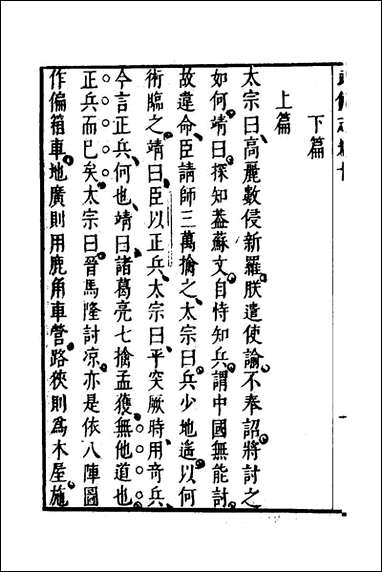 下篇
上篇
太宗曰高麗數侵新羅朕遣使諭不奉詔將討之
如何靖曰探知蓋蘇文自恃知兵謂中國無能討
故違命臣請師三萬擒之太宗曰兵少地遥以何
術臨之靖曰臣以正兵太宗曰平突厥時用奇兵
今言正兵何也靖曰諸葛亮七擒孟獲無他道也
正兵而已矣太宗曰晉馬隆討凉亦是依八陣圖
作偏箱車地廣則用鹿角車營路狹則爲木屋施